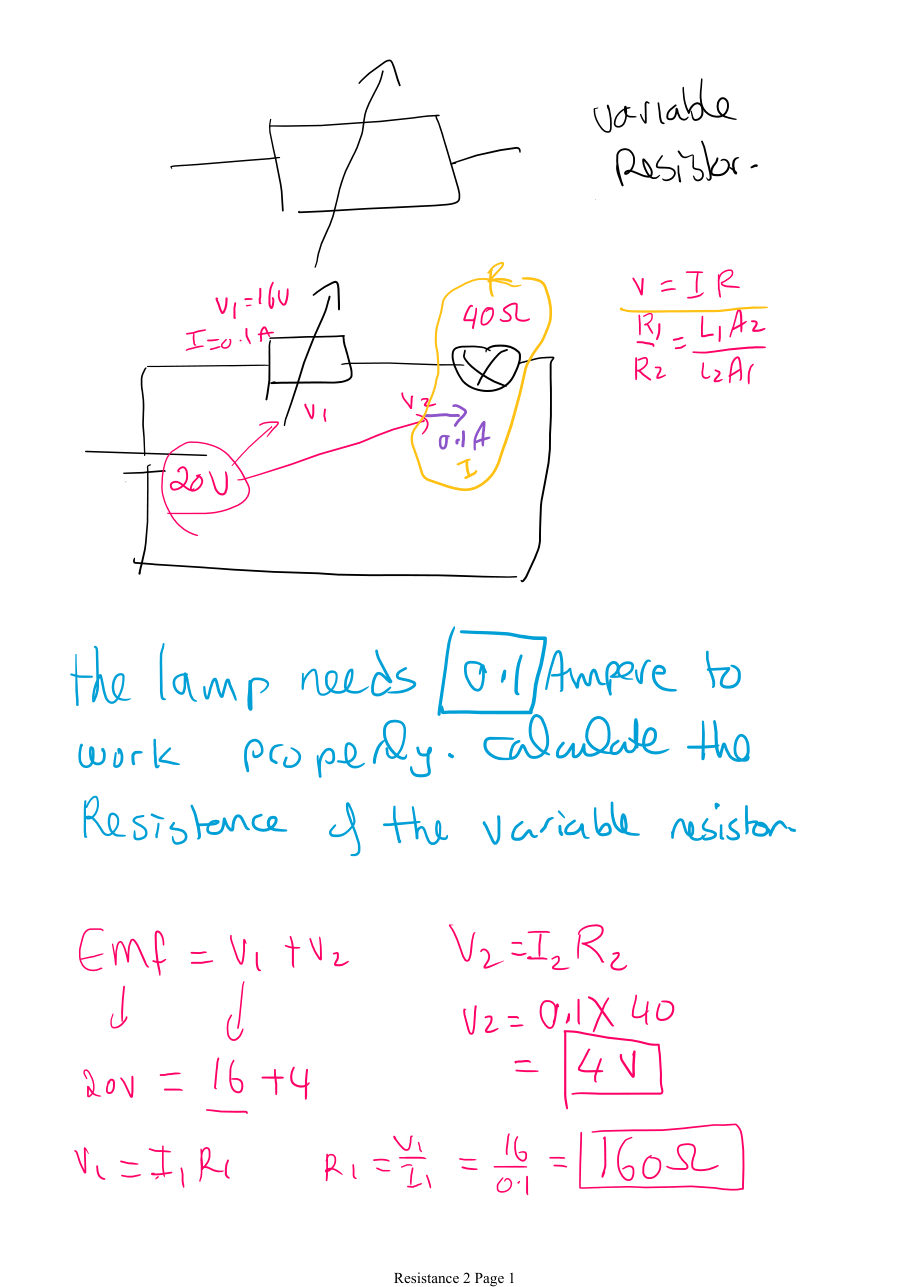 variable
Resistor.
R
V1=16V
40Ω
V = I R
I=0.1A
R1/R2 = L1A2/L2A1
V1
V2
0.1A
I
20V
the lamp needs 0.1 Ampere to
work properly. Calculate the
Resistance of the variable resistor
Emf = V1 + V2
V2 = I2 R2
V2 = 0.1 X 40
= 4 V
20V = 16 + 4
V1 = I1 R1
R1 = V1/I1 = 16/0.1 = 160Ω
Resistance 2 Page 1